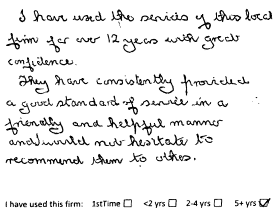 I have used the services of this local
firm for over 12 years with great
confidence.
They have consistently provided
a good standard of service in a
friendly and helpful manner
and would not hesitate to
recommend them to others.
I have used this firm: 1stTime ☐ <2 yrs ☐ 2-4 yrs ☐ 5+ yrs ☑